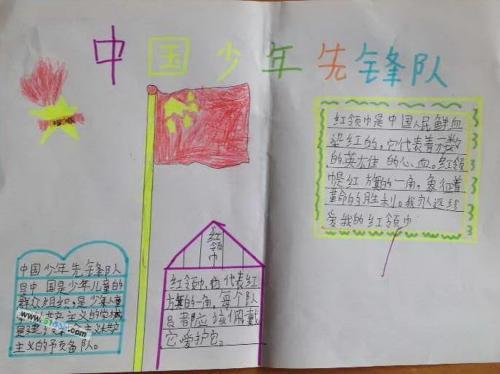 中国少年先锋队
红领巾是中国人民鲜血
染红的。它代表着无数
的英雄 的心血。红领
巾是红旗的一角，象征着
革命的胜利。我永远
爱我的红领巾
红领巾
红领巾，它代表红
旗的一角，每个队
员者都应该佩戴
它，爱护它。
中国少年先锋队
是中国是少年儿童的
群众组织，是少年儿童
共产主义的学校
是建 主义共产
主义的予备队。